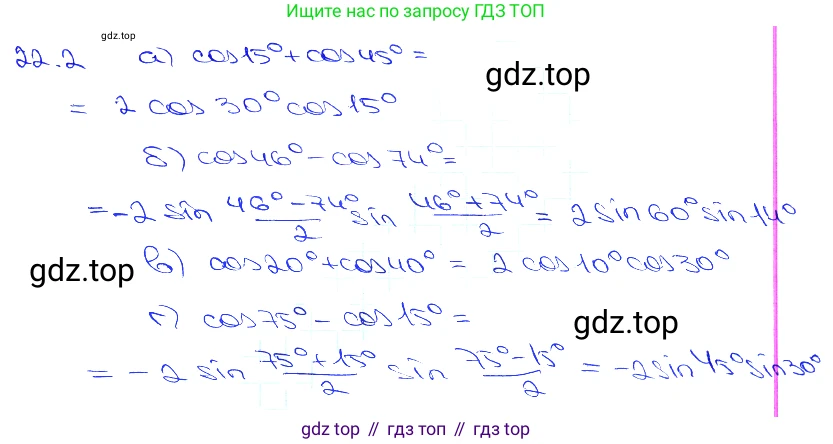 Ищите нас по запросу ГДЗ ТОП
gdz.top
22.2 а) cos15°+cos45°=
gdz.top
= 2 cos 30° cos 15°
б) cos46°-cos74°=
= -2 sin (46°-74°)/2 sin (46°+74°)/2 = 2 sin 60° sin 14°
gdz.top
в) cos20°+cos40° = 2 cos10° cos30°
г) cos75°-cos15°=
gdz.top
= -2 sin (75°+15°)/2 sin (75°-15°)/2 = -2 sin 45° sin 30°
gdz.top // гдз топ // гдз top